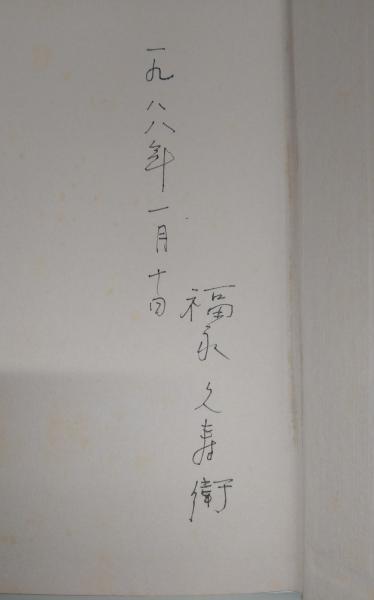 一九八八年一月十日
福永久寿衛